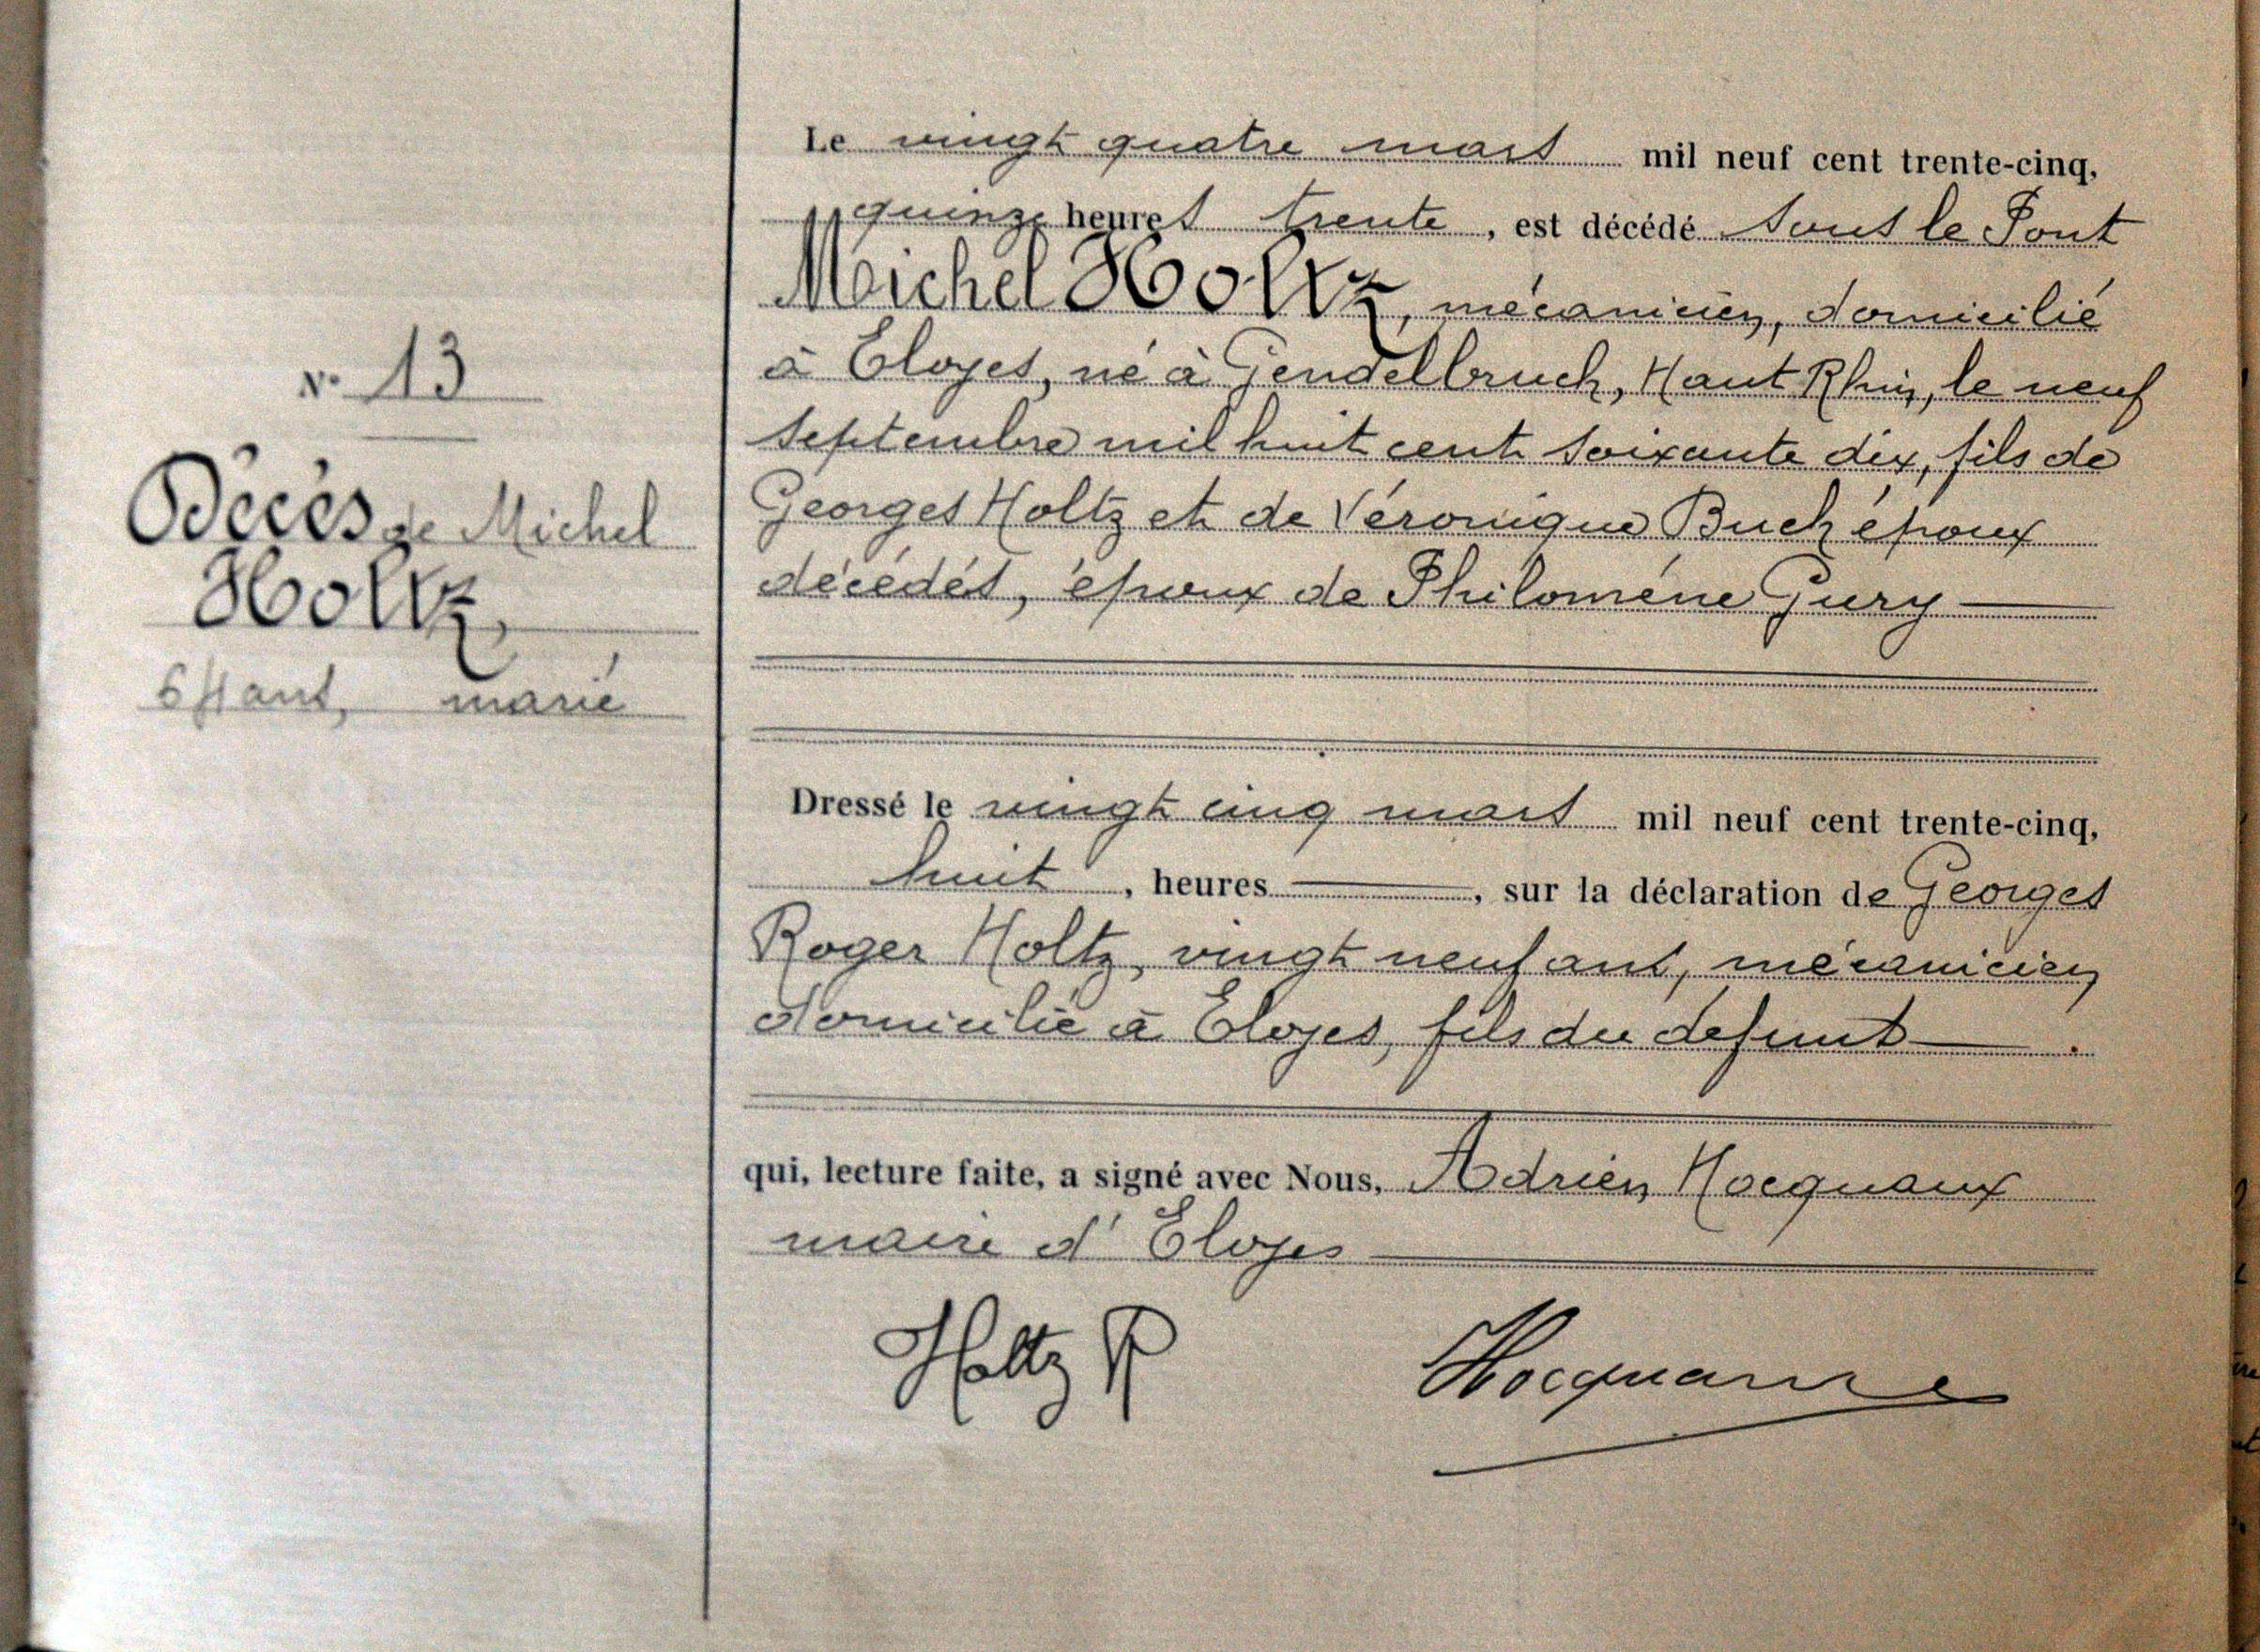 N° 13
Décès de Michel
Holtz,
64 ans, marié
Le vingt quatre mars mil neuf cent trente-cinq,
quinze heures trente, est décédé sous le Pont
Michel Holtz, mécanicien, domicilié
à Eloyes, né à Gendelbruch, Haut Rhin, le neuf
septembre mil huit cent soixante dix, fils de
Georges Holtz et de Véronique Buch époux
décédés, époux de Philomène Gury
Dressé le vingt cinq mars mil neuf cent trente-cinq,
huit, heures, sur la déclaration de Georges
Roger Holtz, vingt neuf ans, mécanicien
domicilié à Eloyes, fils du défunt
qui, lecture faite, a signé avec Nous, Adrien Hocquaux
maire d'Eloyes
Holtz R Hocquaux